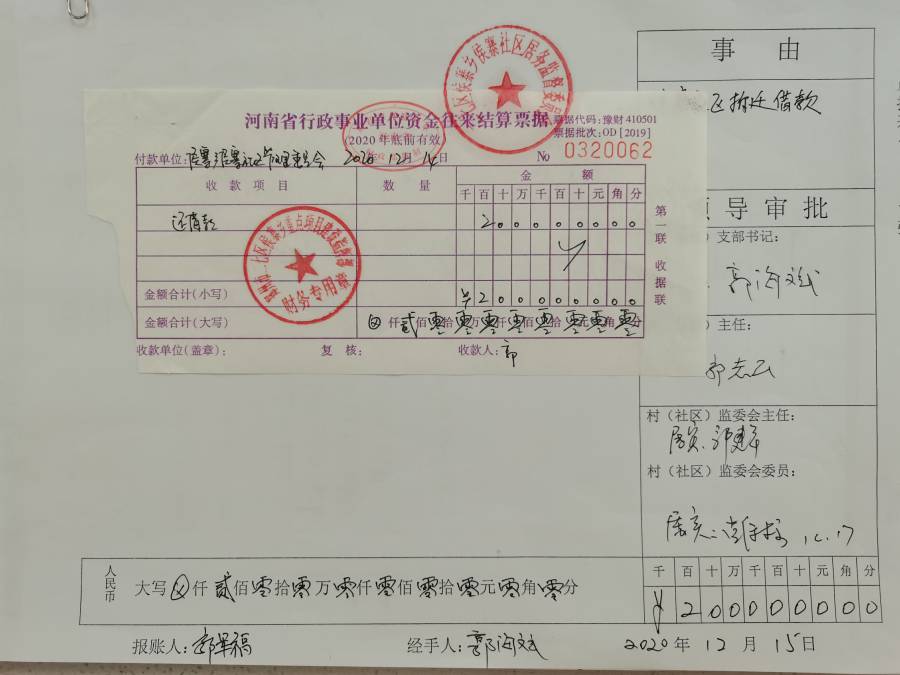 事 由
区拆迁借款
河南省行政事业单位资金往来结算票据
(2020年底前有效)
票据代码:豫财 410501
票据批次:OD [2019]
No 0320062
付款单位:
2020 12月14日
收款项目
数 量
金 额
千 百 十 万 千 百 十 元 角 分
还借款
2 0 0 0 0 0 0 0 0
第一联 收据联
金额合计(小写)
¥ 2 0 0 0 0 0 0 0 0
金额合计(大写)
⊗ 仟 贰 佰 零 拾 零 万 零 仟 零 佰 零 拾 零 元 零 角 零 分
收款单位(盖章):
复 核:
收款人:郭
二七区侯寨乡侯寨社区居务监督委员
郑州市二七区侯寨乡重点项目建设指挥部
财务专用章
领导审批
支部书记:
郭海斌
主任:
郭志云
村(社区)监委会主任:
属实
村(社区)监委会委员:
属实
12.17
人民币
大写 ⊗ 仟 贰 佰 零 拾 零 万 零 仟 零 佰 零 拾 零 元 零 角 零 分
千 百 十 万 千 百 十 元 角 分
¥ 2 0 0 0 0 0 0 0 0
报账人:
经手人:郭海斌
2020 年 12 月 15 日